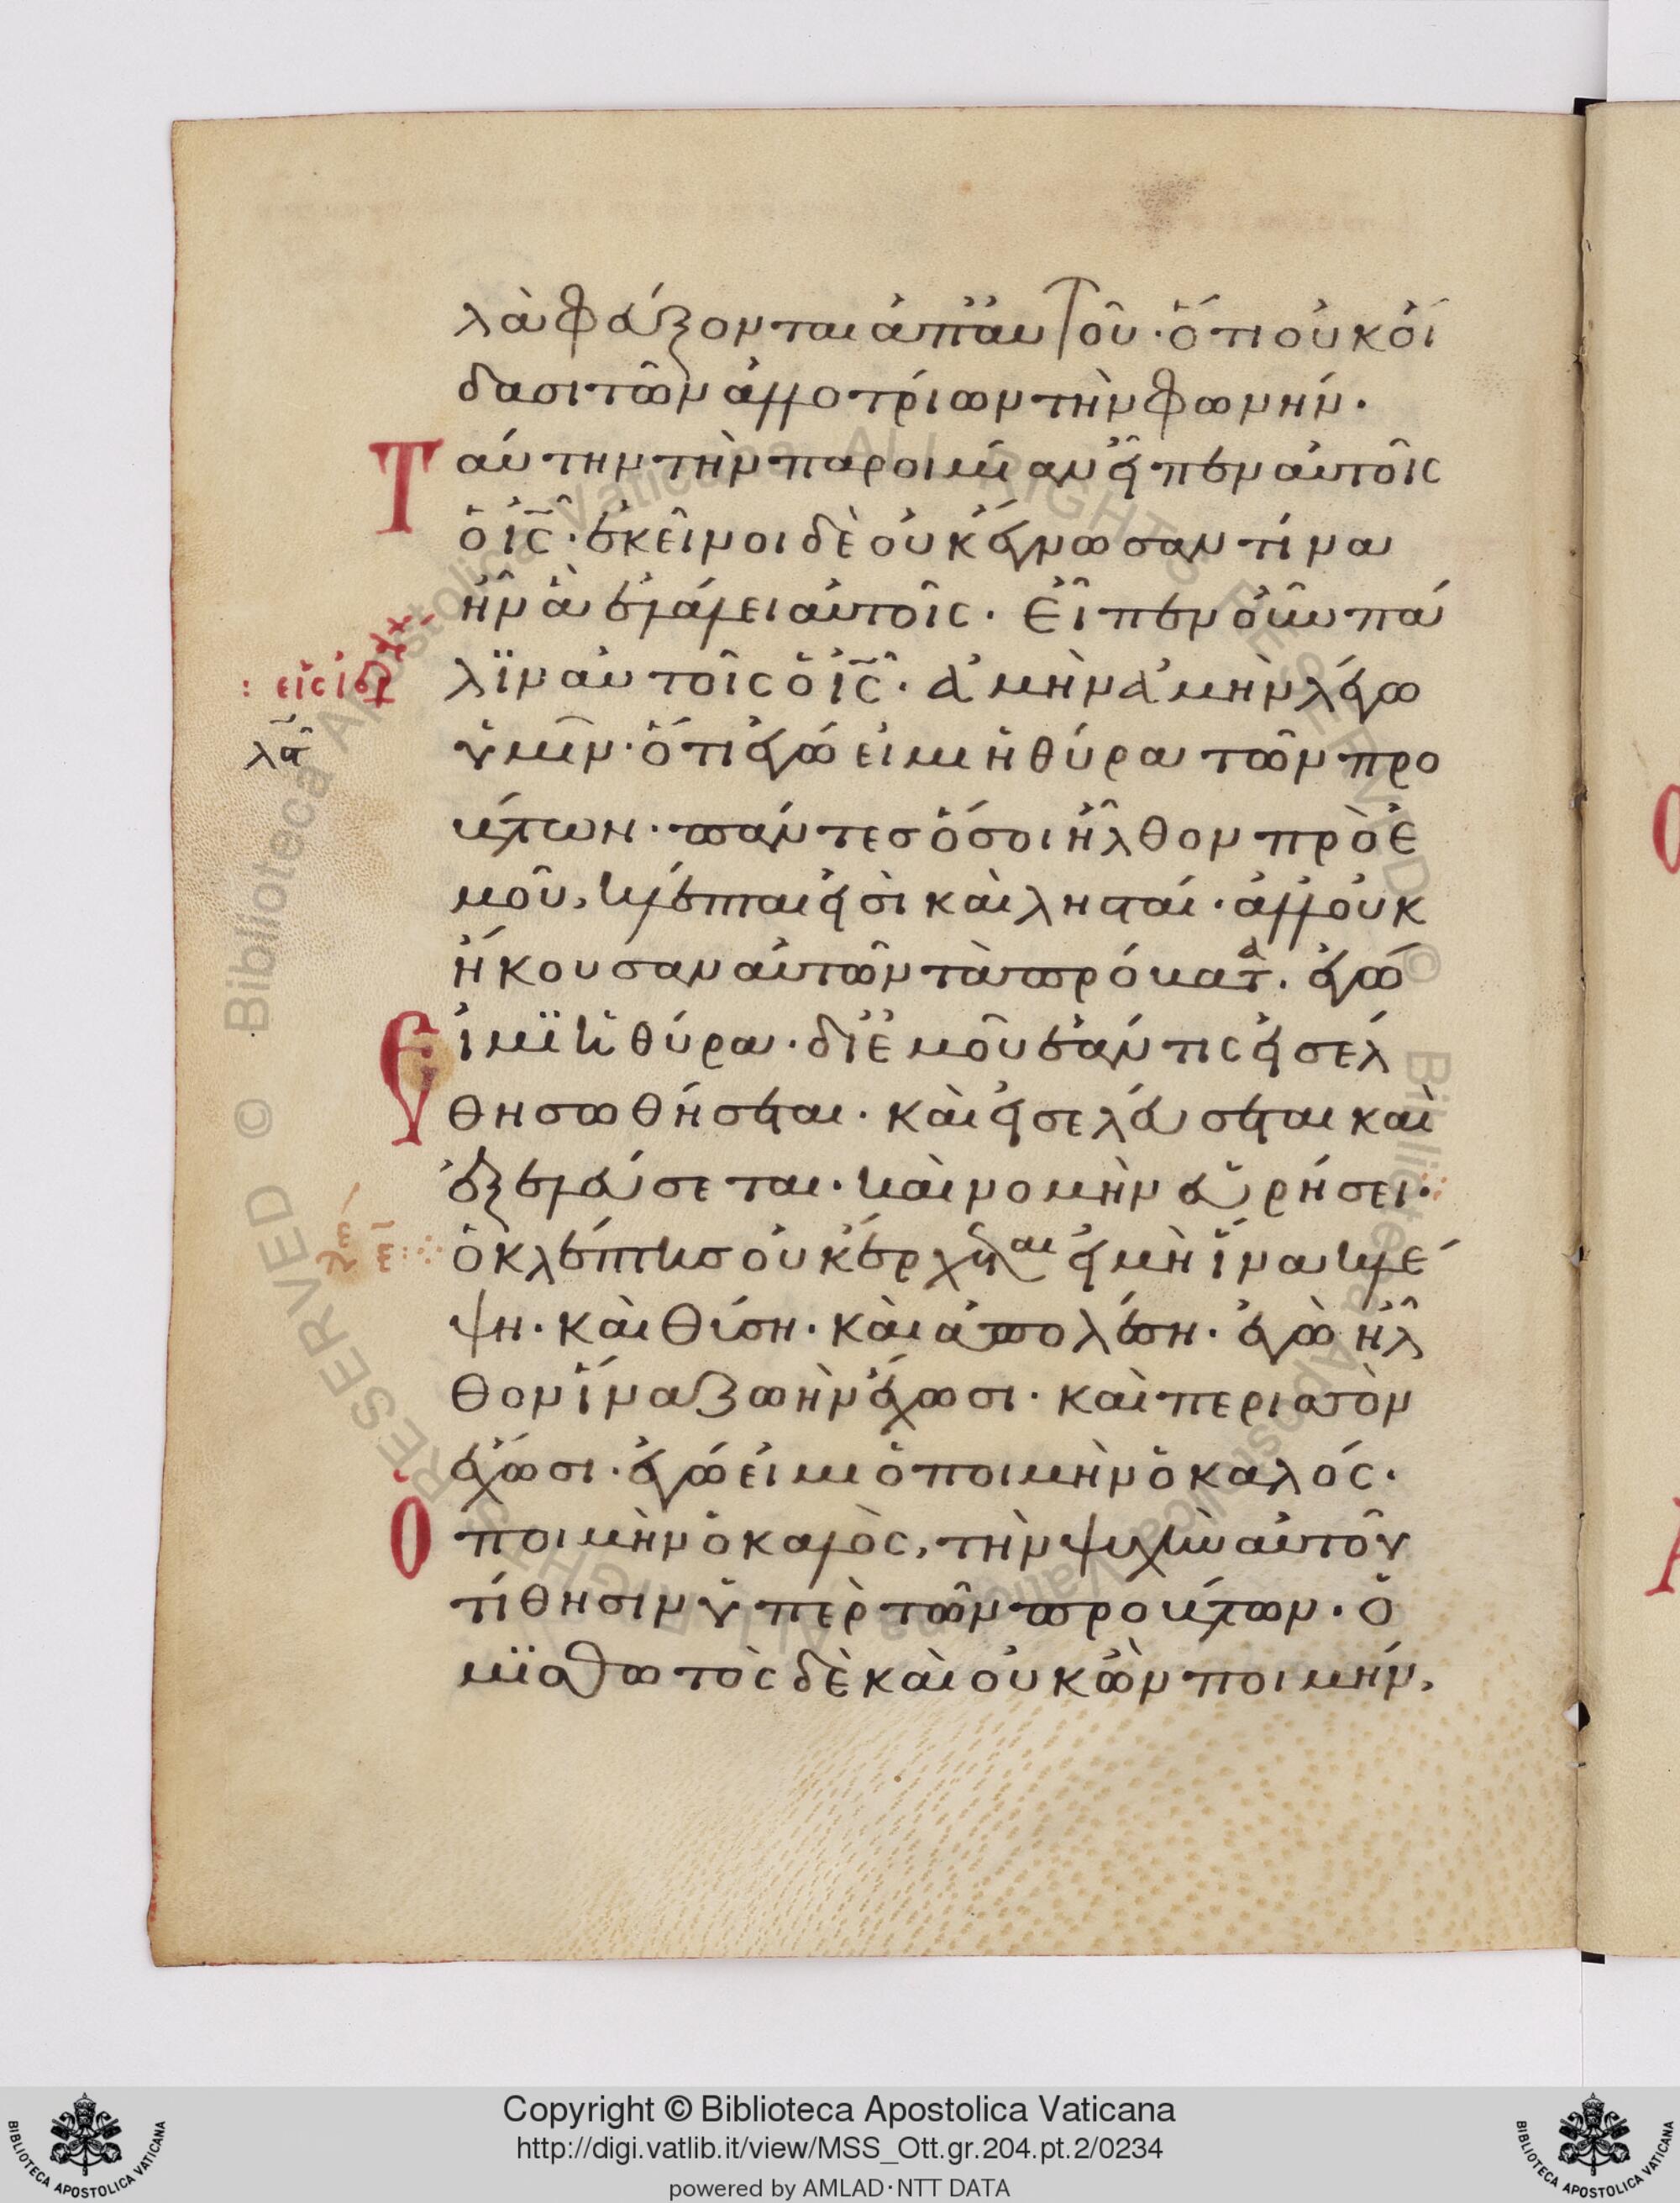 λὰ φεύξονται ἀπ' αὐτοῦ· ὅτι οὐκ οἴ
δασι τῶν ἀλλοτρίων τὴν φωνήν.
Ταύτην τὴν παροιμίαν εἶπεν αὐτοῖς
ὁ ἰ̅ς̅· ἐκεῖνοι δὲ οὐκ ἔγνωσαν τίνα
ἦν ἃ ἐλάλει αὐτοῖς. Εἶπεν οὖν πά
λϊν αὐτοῖς ὁ ἰ̅ς̅· ἀμὴν ἀμὴν λέγω
ὑμῖν· ὅτι ἐγώ εἰμι ἡ θύρα τῶν προ
βάτων· πάντες ὅσοι ἦλθον πρὸ ἐ
μοῦ, κλέπται εἰσὶ καὶ λησταί· ἀλλ' οὐκ
ἤκουσαν αὐτῶν τὰ πρόβατα. ἐγώ
Εἰμϊ ἡ θύρα· δι' ἐμοῦ ἐάν τις εἰσέλ
θη σωθήσεται· καὶ εἰσελεύσεται καὶ
ἐξελεύσεται· καὶ νομὴν εὑρήσει·
ὁ κλέπτης οὐκ ἔρχεται εἰ μὴ ἵνα κλέ
ψη· καὶ θύση· καὶ ἀπολέση· ἐγὼ ἦλ
θον ἵνα ζωὴν ἔχωσι· καὶ περισσὸν
ἔχωσι· ἐγώ εἰμι ὁ ποιμὴν ὁ καλός.
Ὁ ποιμὴν ὁ καλὸς, τὴν ψυχὴν αὐτοῦ
τίθησιν ὑπὲρ τῶν προβάτων. ὁ
μϊσθωτὸς δὲ καὶ οὐκ ὢν ποιμήν,
© Biblioteca Apostolica Vaticana ALL RIGHTS RESERVED
Copyright © Biblioteca Apostolica Vaticana
http://digi.vatlib.it/view/MSS_Ott.gr.204.pt.2/0234
powered by AMLAD·NTT DATA
BIBLIOTECA APOSTOLICA VATICANA
BIBLIOTECA APOSTOLICA VATICANA